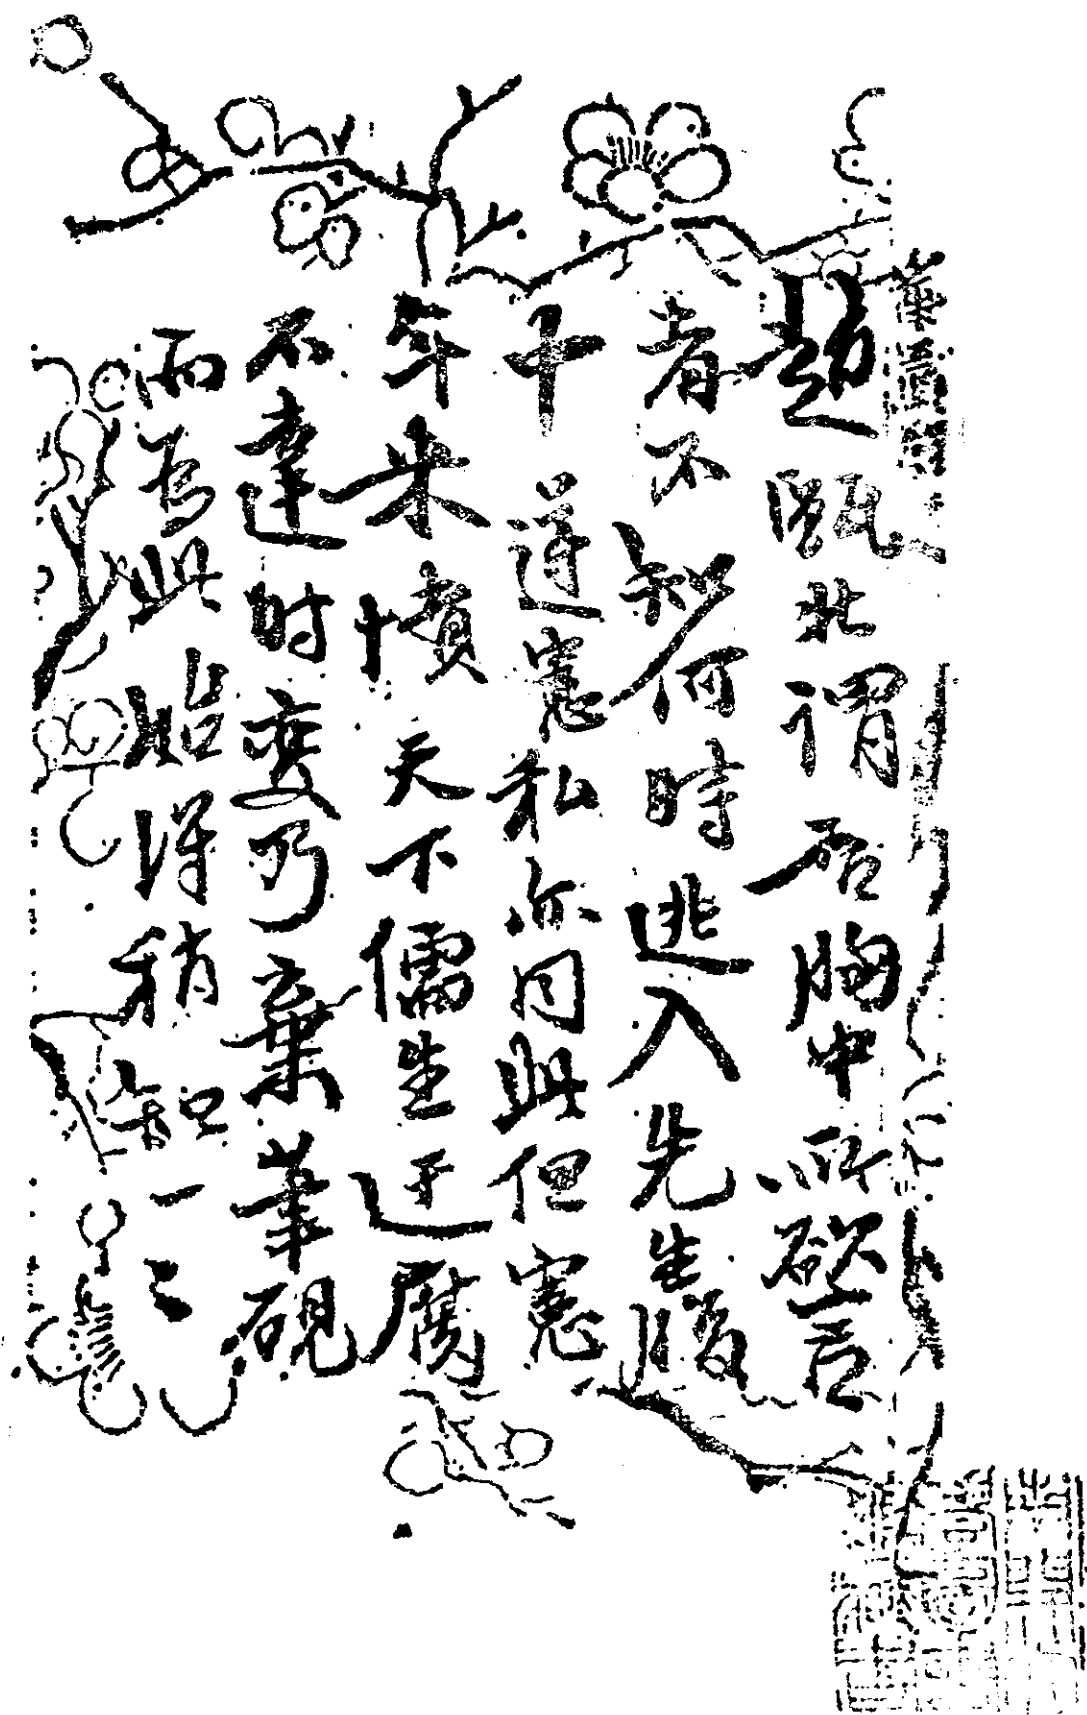 趙甌北謂吾胸中所欲言
者不知何時逃入先生腹
中遵憲私亦同此但憲
年来憤天下儒生迂腐
不達时变乃棄筆硯
而為此始得稍知一二